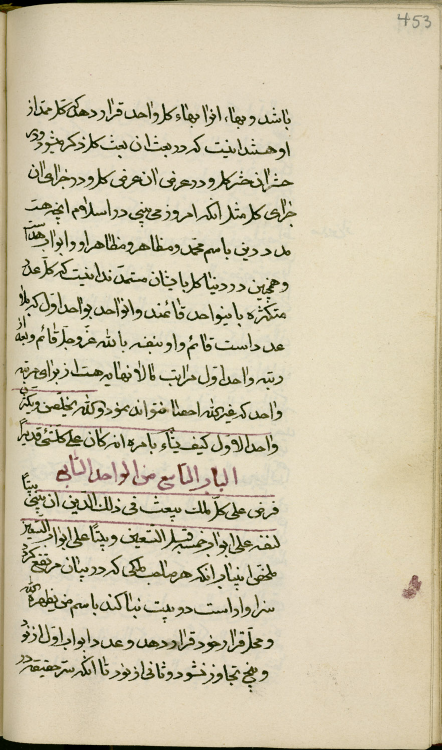 453
باشد و بهاء افرا بهاء كل واحد قرار دهد كه كل ممد از
او هستند اینست كه در بعث ان بعث كل ذكر میشود و در
حشر ان حشر كل و در عرض ان عرض كل و در جزای ان
جزای كل مثل انكه امروز می بینی در اسلام انچه هست
مدد دین باسم محمد و مظاهر و مظاهر او و ابواب هدا
و همچنین در دنیا كل باینان مستمدند اینست كه كل عدد
متكثره باینواحد قائمند و انواحد بواحد اول كه بلا
عدد است قائم و او بنفسه بالله عز و جل قائم و بعد از
رتبه واحد اول مراتب لا الا نهایه هست از برای هر رتبه
واحد كه غیر الله احصا نتواند نمود و لله یخلقن و یكثرن
واحد الاول كیف یشاء بامره انه كان علی كلشیء قدیرا
الباب التاسع من الواحد التاسع
فرض علی كل ملك یبعث فی ذلك الدین ان یبنی بیتا
لنفسه علی ابواب خمسة قبل التسعین و بیتا علی ابواب التسعین
ملخص این باب انكه هر صاحب ملكی كه در بیان مرتفع گردد
سزاوار است دو بیت بنا كند باسم من یظهره الله
و محل قرار خود قرار دهد و عدد ابواب اول از نود
و پنج تجاوز نشود و ثانی از نود تا انكه سر حقیقه در